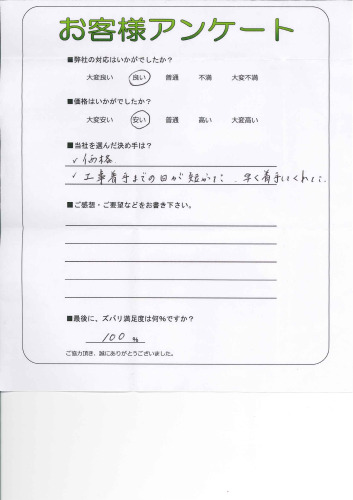 お客様アンケート
■弊社の対応はいかがでしたか?
大変良い 良い 普通 不満 大変不満
■価格はいかがでしたか?
大変安い 安い 普通 高い 大変高い
■当社を選んだ決め手は?
✓価格.
✓工事着手までの日が短かった.早く着手してくれた.
■ご感想・ご要望などをお書き下さい。
■最後に、ズバリ満足度は何%ですか?
100 %
ご協力頂き、誠にありがとうございました。